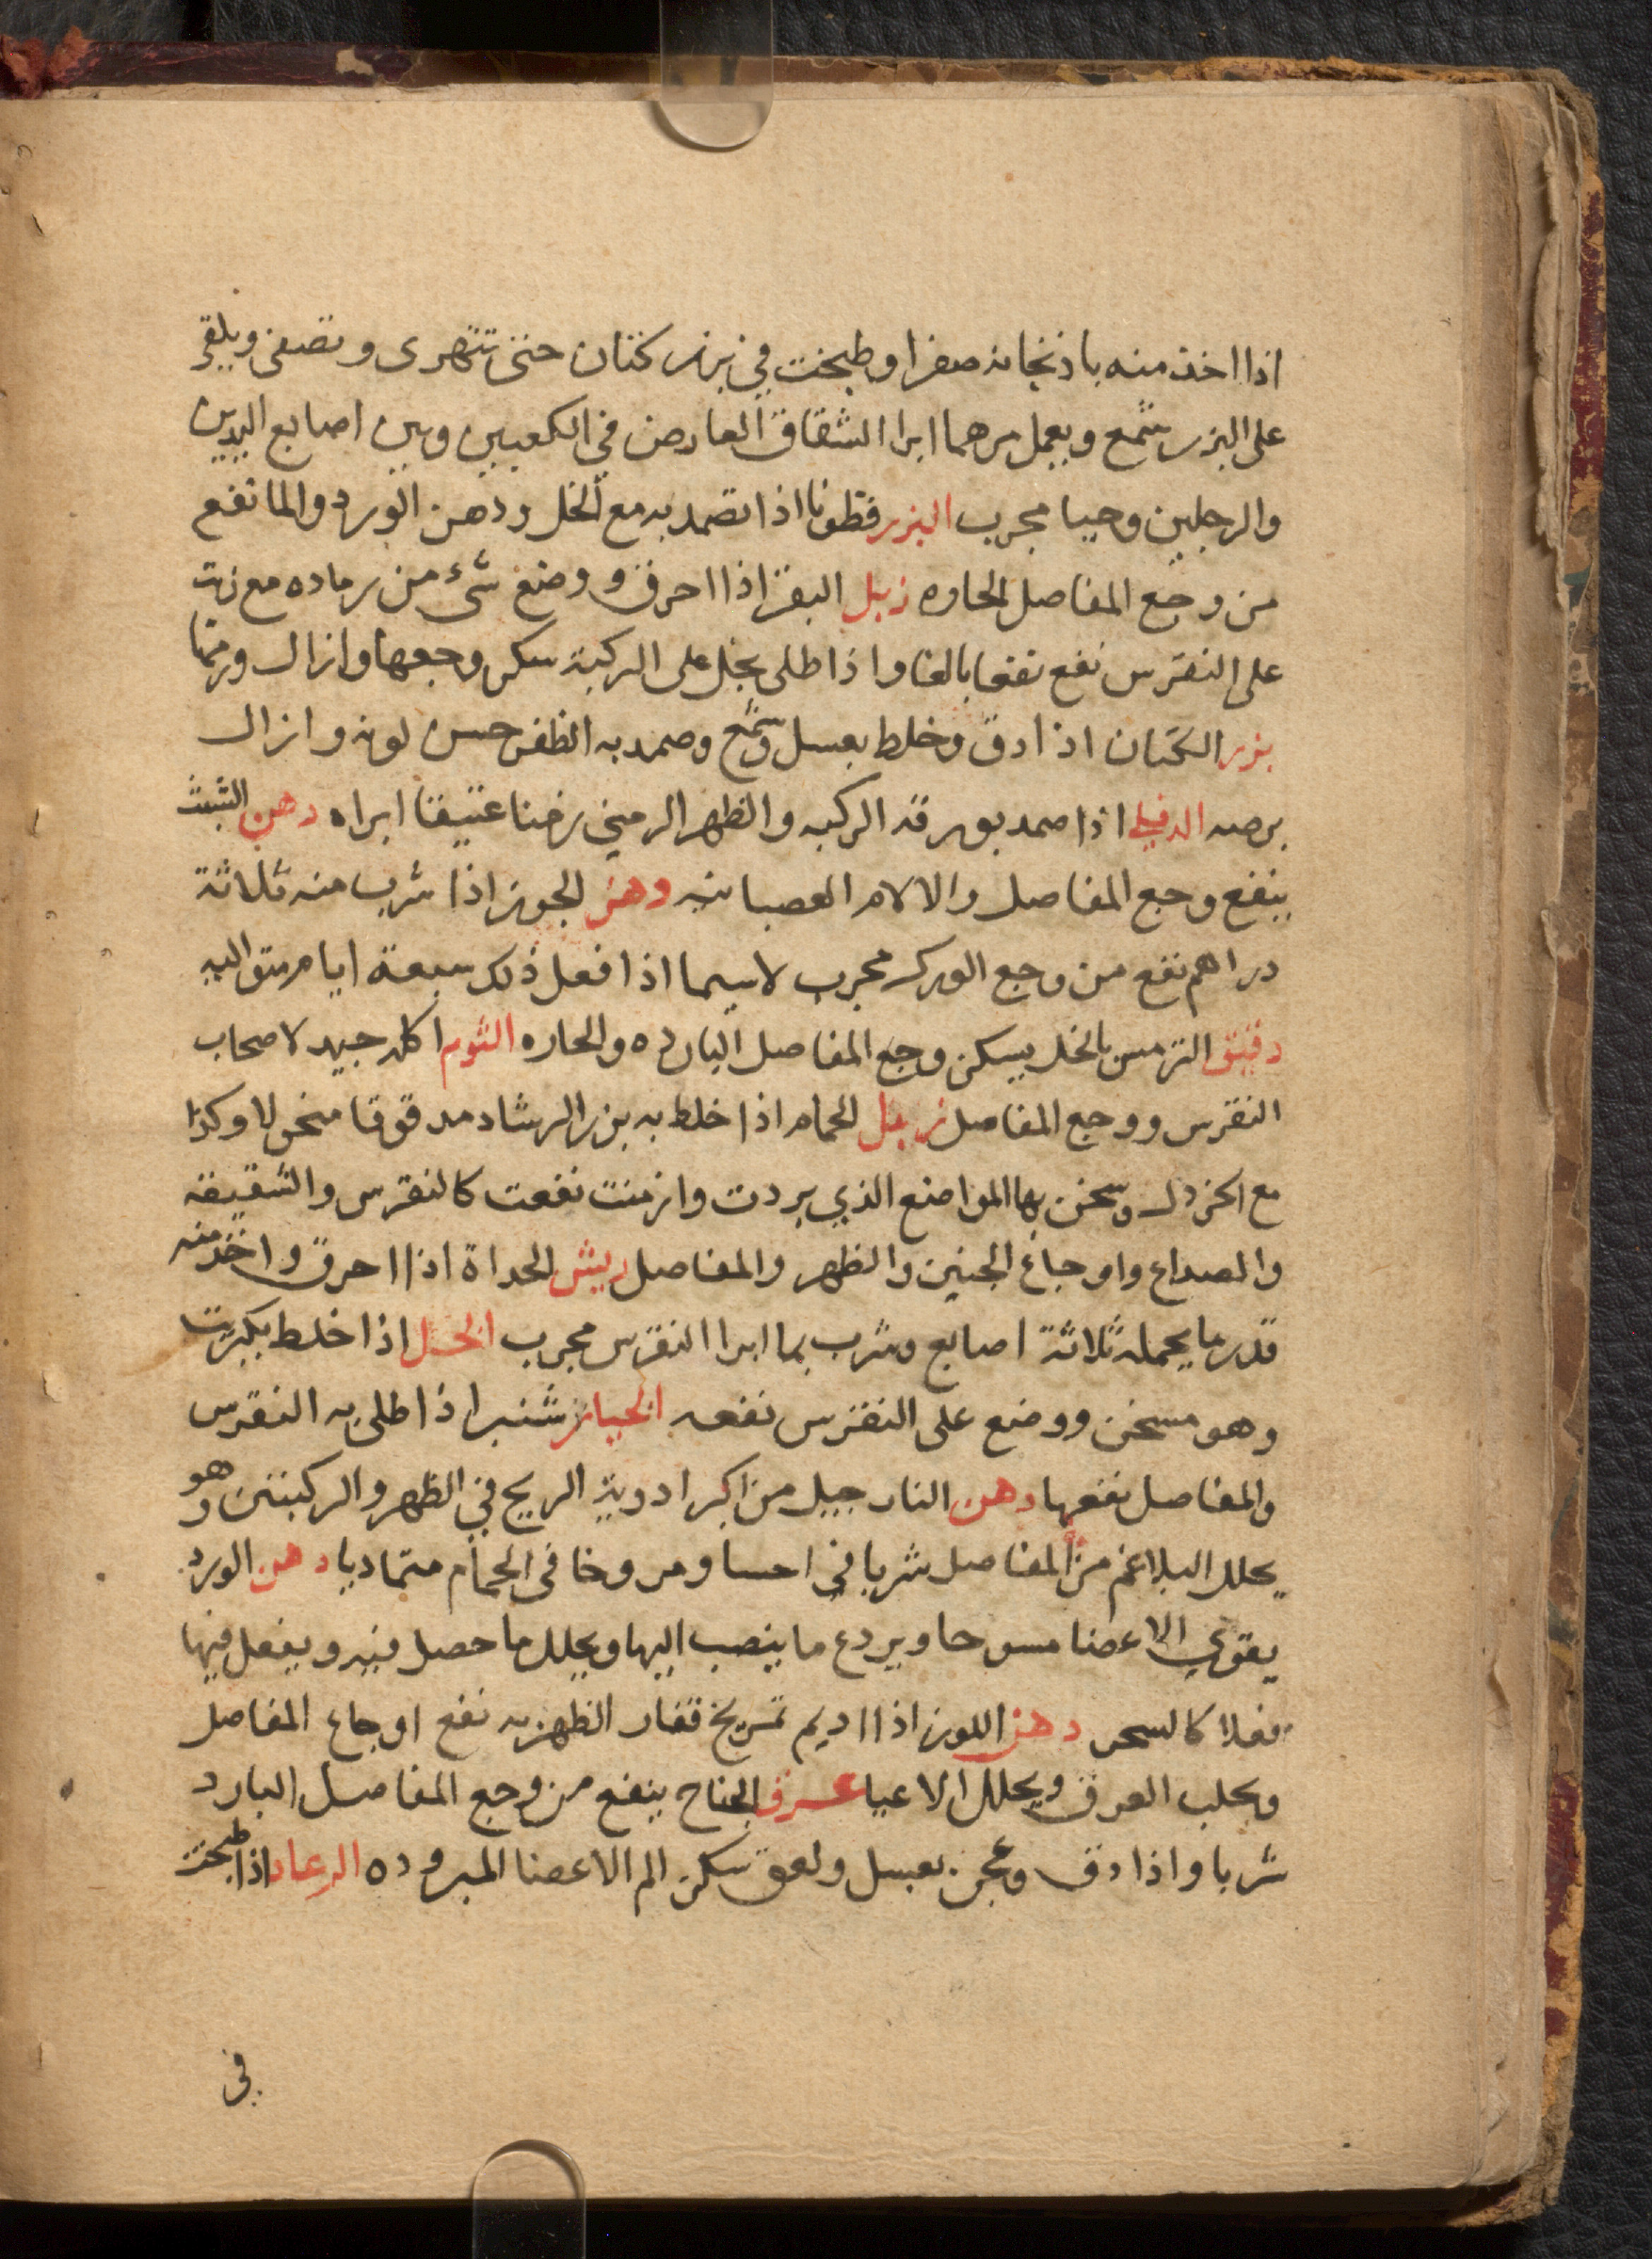 اذا اخذ منه باذنجانه صفرا وطبخت في بزر كتان حتى تتهرى وتصفى ويلقى
على البزر شمع ويعمل مرهما ابرا الشقاق العارض في الكعبين وبين اصابع اليدين
والرجلين وحيا مجرب البزر قطونا اذا تضمد به مع الخل ودهن الورد والما نفع
من وجع المفاصل الحاره زبل البقر اذا احرق ووضع شىء من رماده مع زيت
على النقرس نفع نفعا بالغا واذا طلى بخل على الركبة سكن وجعها وازال ورمها
بزر الكتان اذا دق وخلط بعسل وشمع وضمد به الظفر حسن لونه وازال
برصه الدفلي اذا ضمد بورقه الركبه والظهر الزمني زمنا عتيقا ابراه دهن الشبث
ينفع وجع المفاصل والالام العصبانيه دهن الجوز اذا شرب منه ثلاثة
دراهم نفع من وجع الورك مجرب لاسيما اذا فعل ذلك سبعة ايام متواليه
دقيق الترمس بالخل يسكن وجع المفاصل البارده والحاره الثوم اكله جيد لاصحاب
النقرس ووجع المفاصل زبل الحمام اذا خلط به بزر الرشاد مدقوقا منخولا وكذا
مع الخردل وسخن بها المواضع الذي بردت وازمنت نفعت كالنقرس والشقيقه
والصداع واوجاع الجنبين والظهر والمفاصل ريش الحداة اذا احرق واخذ منه
قدر ما يحمله ثلاثة اصابع وشرب بما ابرا النقرس مجرب الخل اذا خلط بكبريت
وهو مسخن ووضع على النقرس نفعه الخيار شنبر اذا طلى به النقرس
والمفاصل نفعها دهن النارجيل من اكبر ادوية الريح في الظهر والركبتين وهو
يحلل البلاغم من المفاصل شربا في احسا ومروخا فى الحمام متماديا دهن الورد
يقوي الاعضا مسوحا ويردع ما ينصب اليها ويحلل ما حصل فيه ويفعل فيها
فعلا كالسحر دهن اللوز اذا اديم تمريخ فقار الظهر به نفع اوجاع المفاصل
ويجلب العرق ويحلل الاعيا عرق الجناح ينفع من وجع المفاصل البارد
شربا واذا دق وعجن بعسل ولعق سكن الم الاعضا المبروده الرعاد اذا طبخت
في